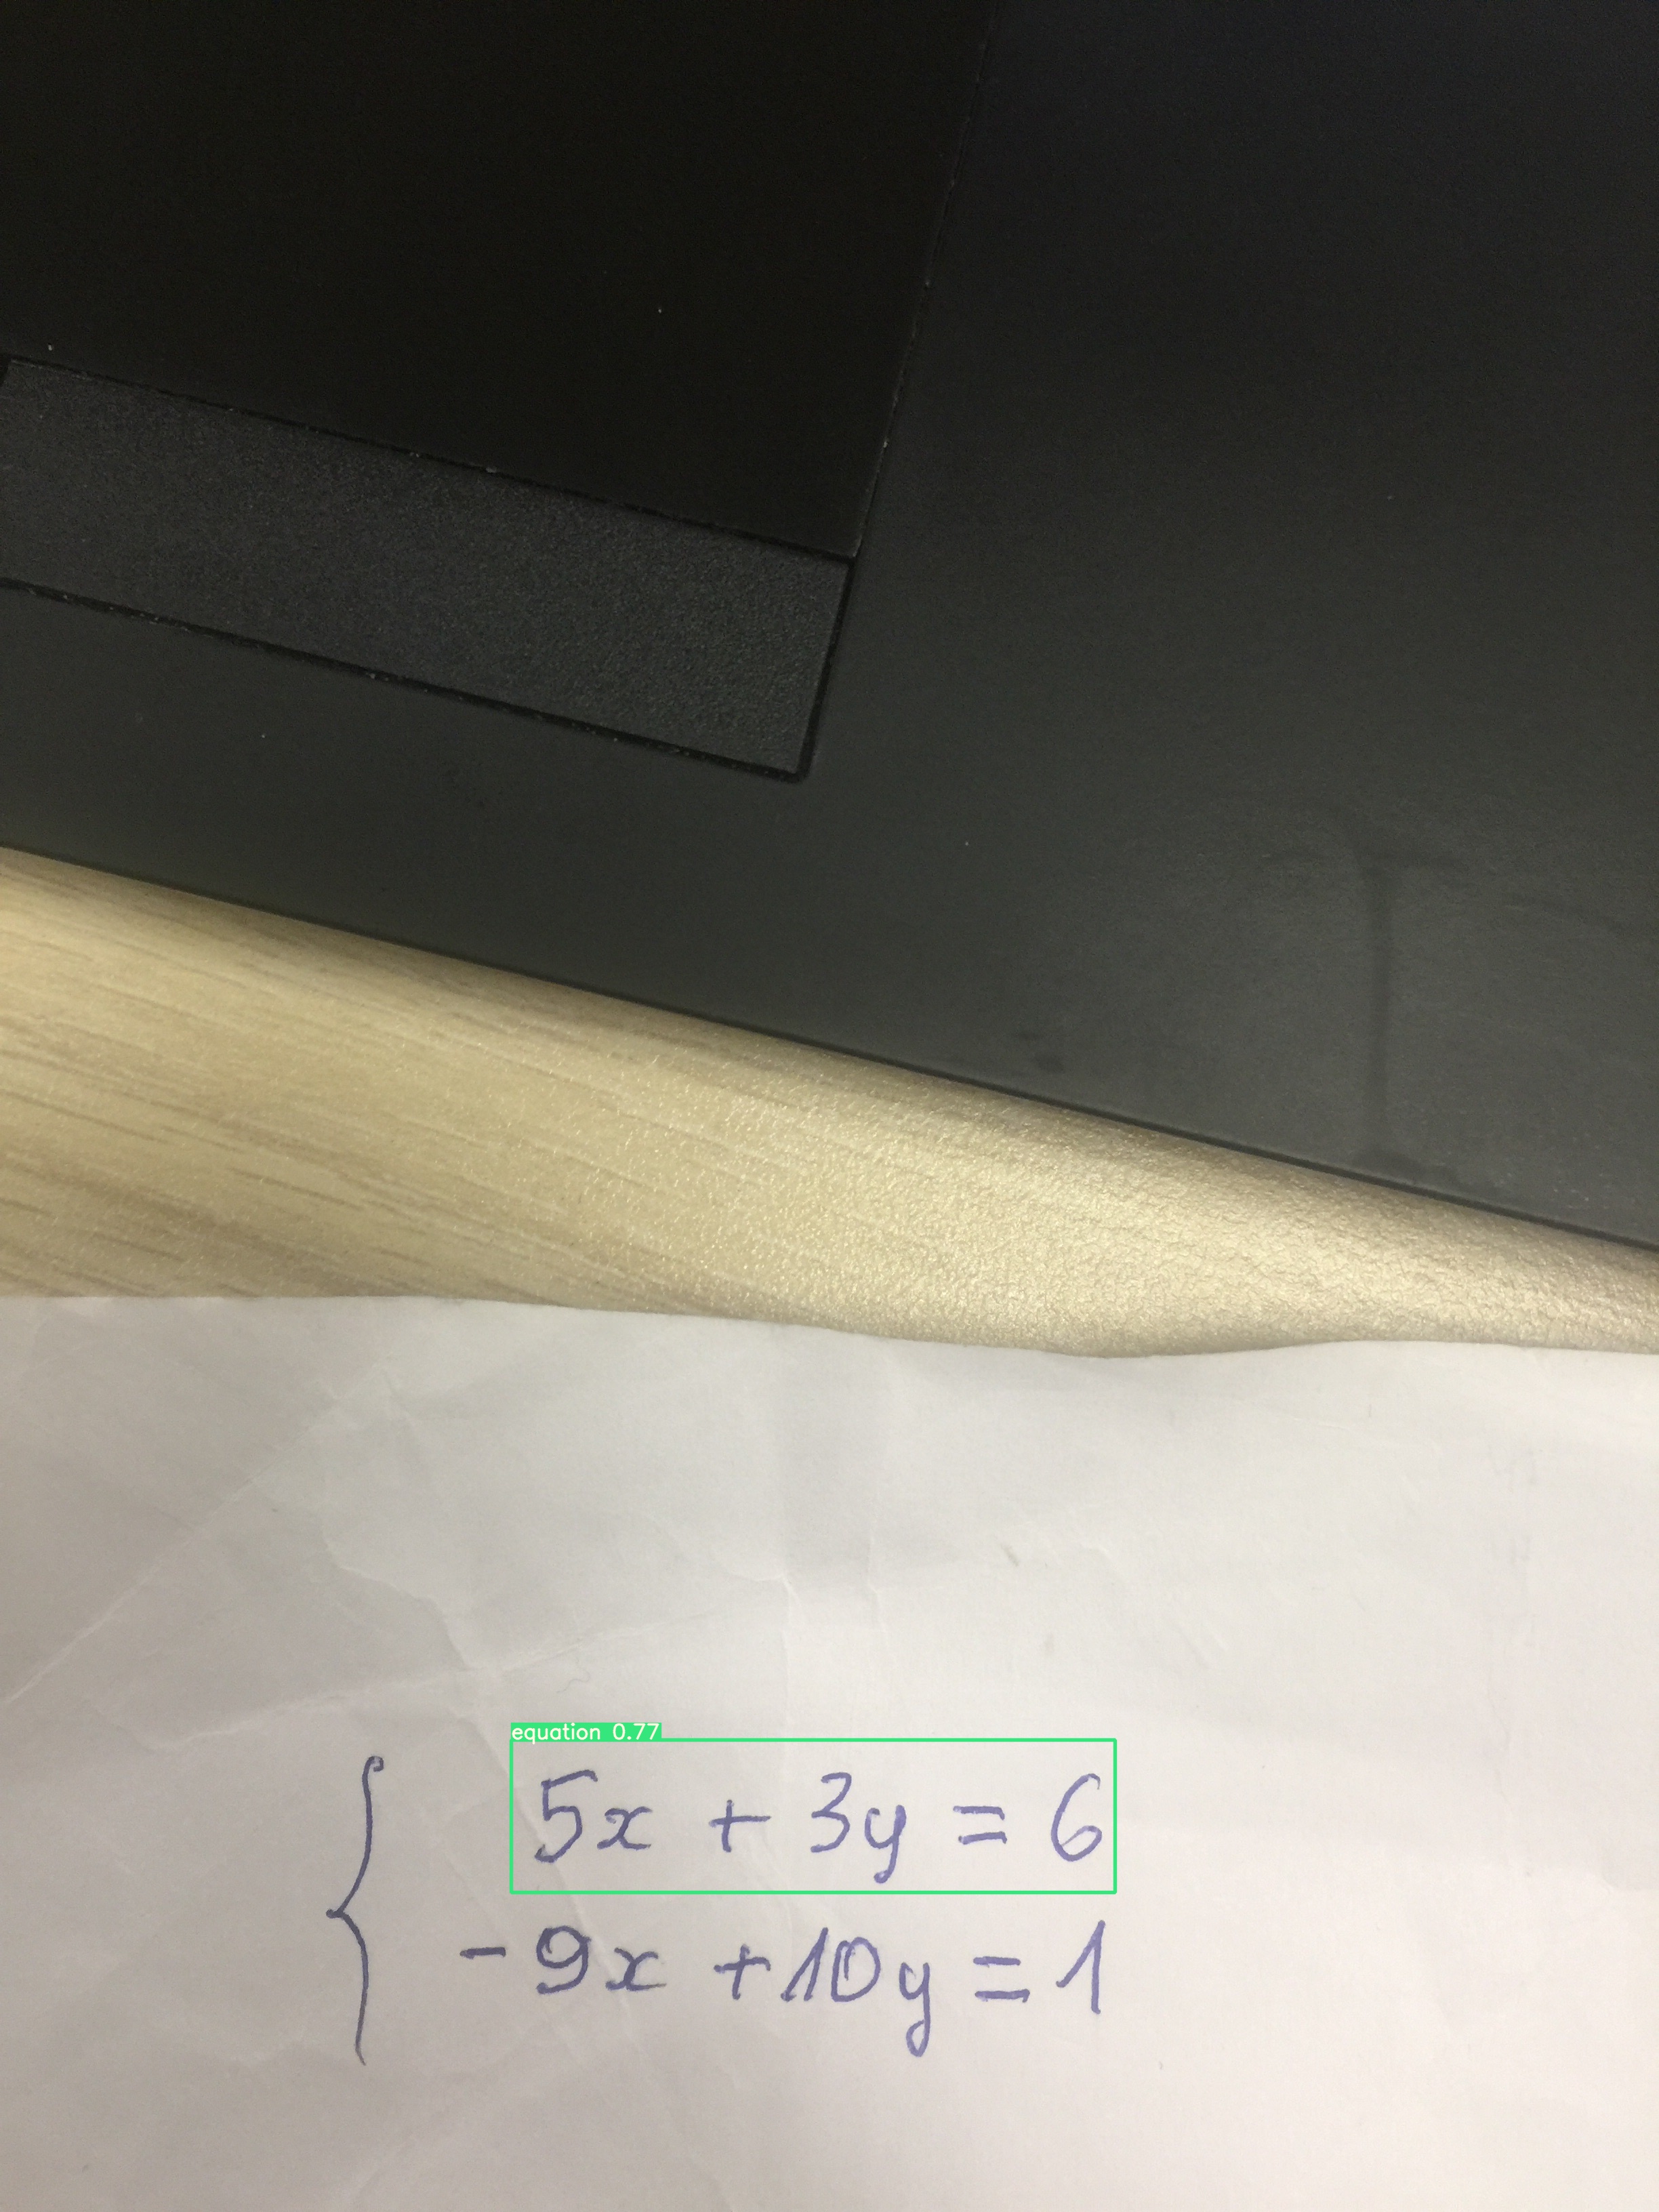 equation 0.77
5x + 3y = 6
-9x + 10y = 1